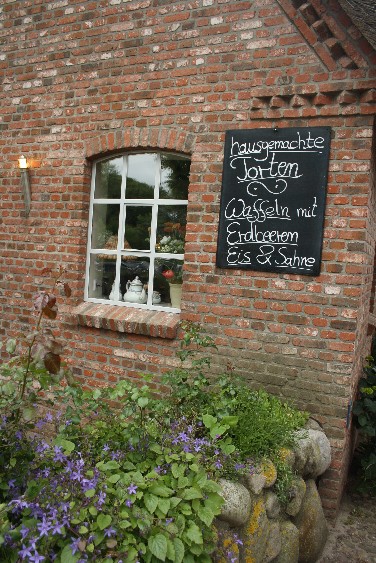 hausgemachte
Torten
Waffeln mit
Erdbeeren
Eis & Sahne